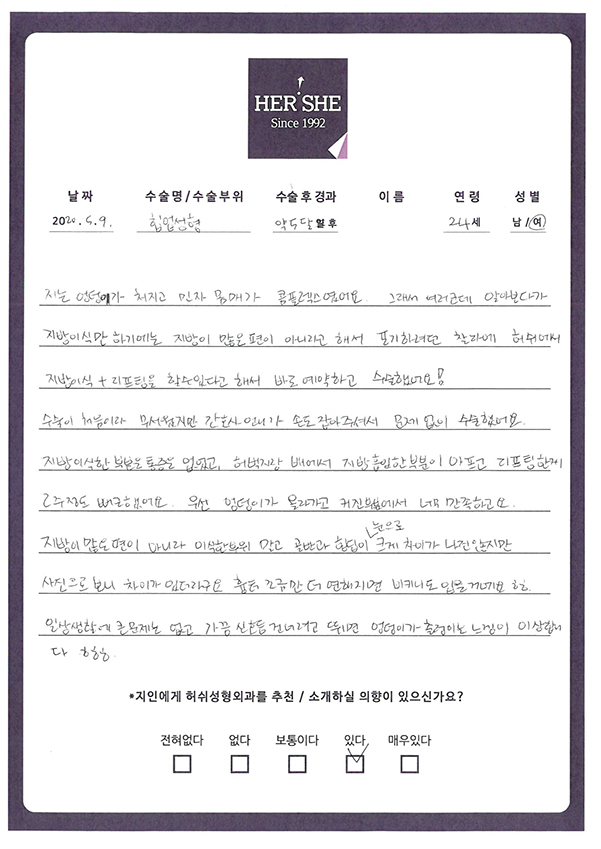 HER SHE
Since 1992
날짜 수술명/수술부위 수술 후 경과 이름 연령 성별
2020.5.9. 힙업성형 약 두달 일 후 24세 남/여
저는 엉덩이가 처지고 민자 몸매가 콤플렉스였어요. 그래서 여러군데 알아보다가
지방이식만 하기에는 지방이 많은 편이 아니라고 해서 포기하려던 찰나에 허쉬에서
지방이식 + 리프팅을 할수있다고 해서 바로 예약하고 수술했어요!
수술이 처음이라 무서웠지만 간호사 언니가 손도 잡아주셔서 문제 없이 수술했어요.
지방이식한 부분은 통증은 없었고, 허벅지랑 배에서 지방흡입한 부분이 아프고 리프팅한게
2주정도 뻐근했어요. 우선 엉덩이가 올라가고 커진 에서 너무 만족하고요.
지방이 많은 편이 아니라 이식한 부위 말고 골반과 힙딥이 눈으로 크게 차이가 나진 않지만
사진으로 보니 차이가 있더라구요 흉터 조금만 더 연해지면 비키니도 입을거에요 ㅎㅎ.
일상생활에 큰 문제는 없고 가끔 신호등 건너려고 뛰면 엉덩이가 출렁이는 느낌이 이상합니
다 ㅎㅎㅎ.
*지인에게 허쉬성형외과를 추천 / 소개하실 의향이 있으신가요?
전혀없다 없다 보통이다 있다 매우있다